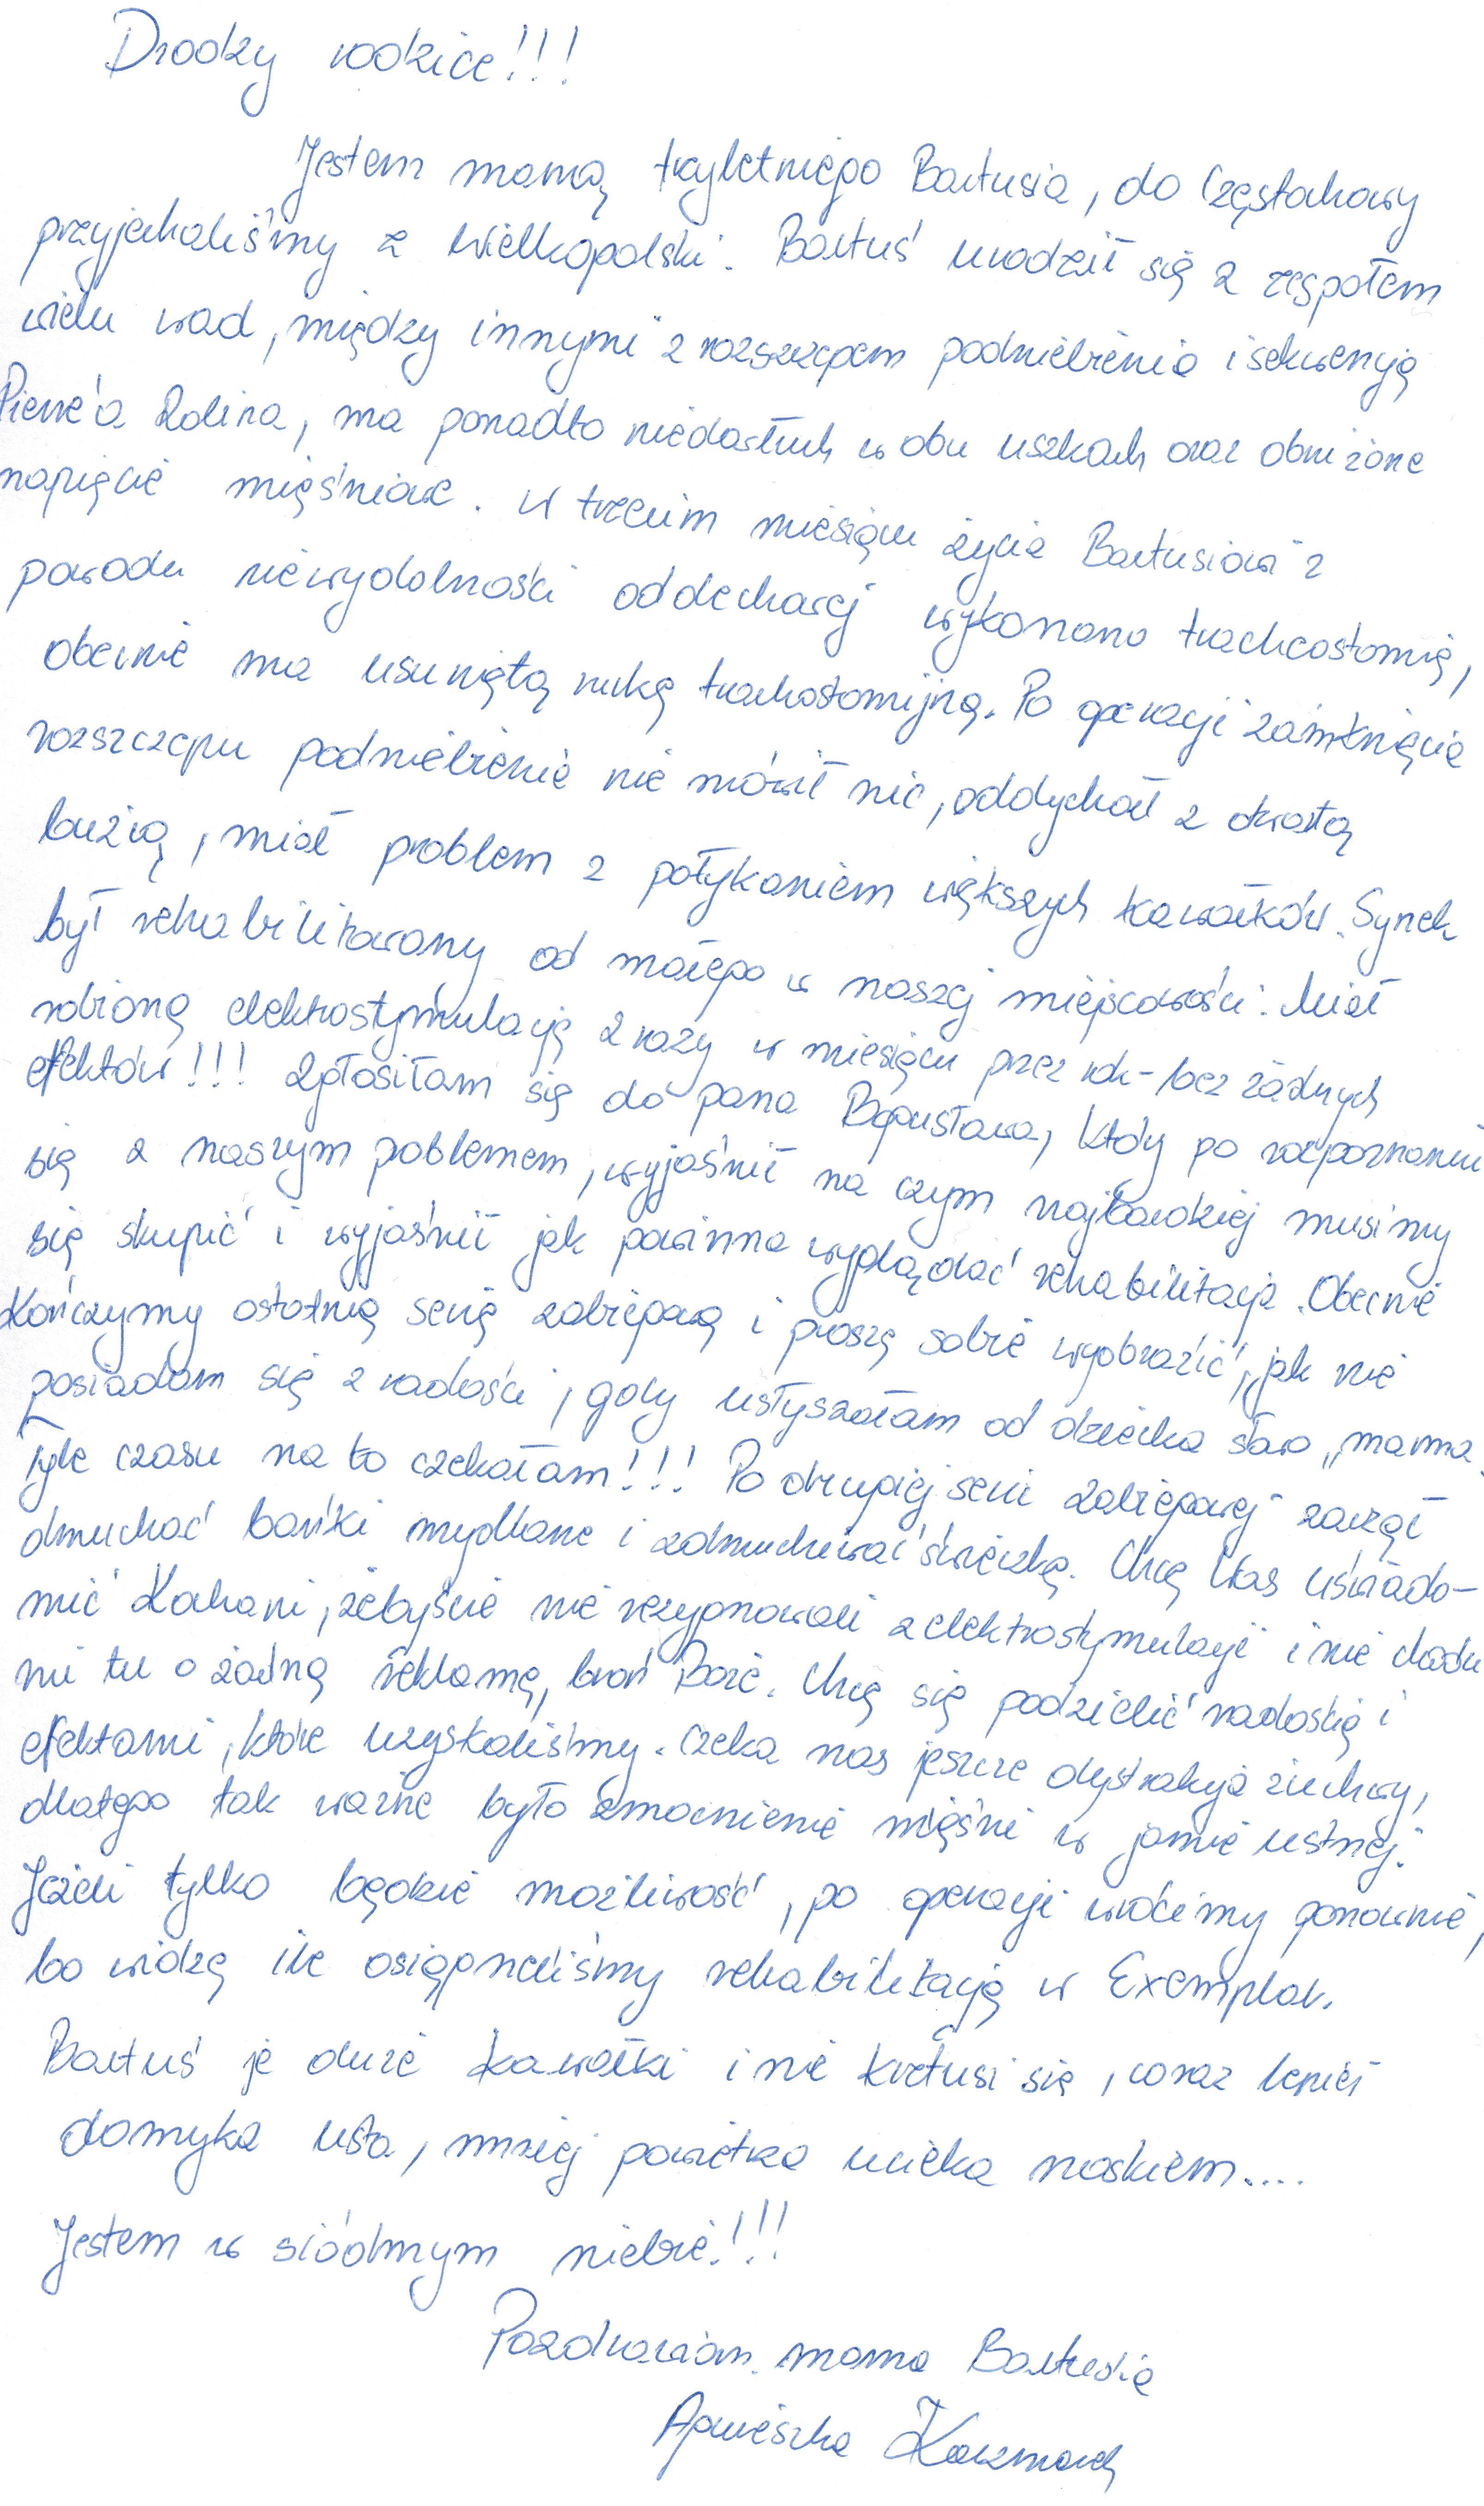 Drodzy rodzice!!!
Jestem mamą trzyletniego Bartusia, do Częstochowy
przyjechaliśmy z Wielkopolski. Bartuś urodził się z zespołem
wielu wad, między innymi z rozszczepem podniebienia i sekwencją
Pierre'a Robina, ma ponadto niedosłuch w obu uszkach oraz obniżone
napięcie mięśniowe. W trzecim miesiącu życia Bartusiowi z
powodu niewydolności oddechowej wykonano tracheostomię,
obecnie ma usuniętą rurkę trachostomijną. Po operacji zamknięcia
rozszczepu podniebienie nie mówił nic, oddychał z otwartą
buzią, miał problem z połykaniem większych kawałków. Synek
był rehabilitowany od małego w naszej miejscowości. Miał
robioną elektrostymulację 2 razy w miesiącu przez rok - bez żadnych
efektów!!! Zgłosiłam się do pana Bogusława, który po rozpoznaniu
się z naszym problemem, wyjaśnił na czym najbardziej musimy
się skupić i wyjaśnił jak powinna wyglądać rehabilitacja. Obecnie
Kończymy ostatnią serię zabiegową i proszę sobie wyobrazić, jak nie
posiadam się z radości, gdy usłyszałam od dziecka słowo „mama.
Tyle czasu na to czekałam!!! Po drugiej serii zabiegowej zaczął
dmuchać bańki mydlane i zdmuchiwać świeczkę. Chcę Was uświado-
mić Kochani, żebyście nie rezygnowali z elektrostymulacji i nie chodzi
mi tu o żadną reklamę, broń Boże. Chcę się podzielić radością i
efektami, które uzyskaliśmy. Czeka nas jeszcze dystrakcja żuchwy,
dlatego tak ważne było wzmocnienie mięśni w jamie ustnej.
Jeżeli tylko będzie możliwość, po operacji wrócimy ponownie,
bo widzę ile osiągneliśmy rehabilitacją w Exemplar.
Bartuś je duże kawałki i nie krztusi się, coraz lepiej
domyka usta, mniej powietrza ucieka noskiem....
Jestem w siódmym niebie!!!
Pozdrawiam. mama Bartusia
Agnieszka